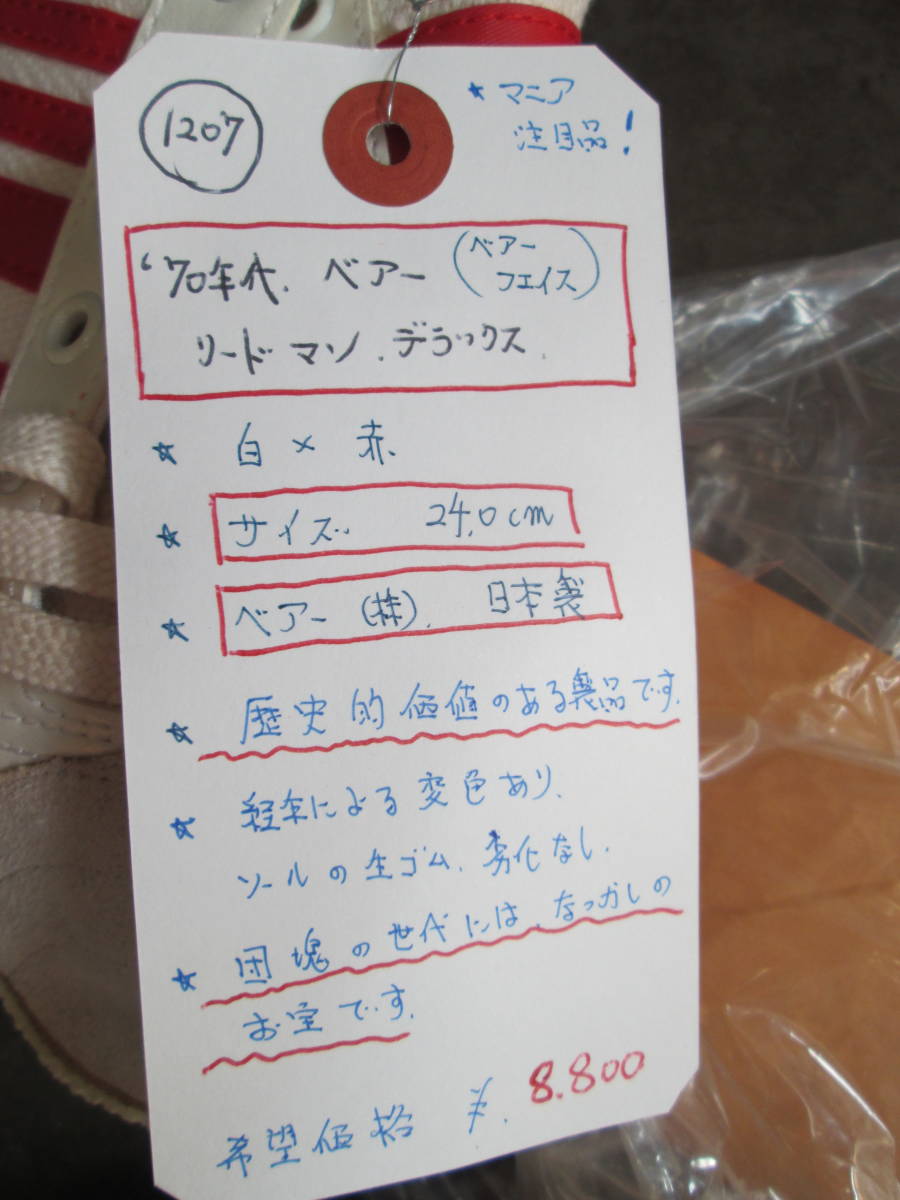 1207
★マニア
注目品!
'70年代.ベアー(ベアー
フェイス)
リードマン.デラックス.
★ 白×赤
★ サイズ.. 24.0cm
★ ベアー(株). 日本製
★ 歴史的価値のある製品です.
★ 経年による変色あり.
ソールの生ゴム.劣化なし.
★ 団塊の世代には、なつかしの
お宝です.
希望価格 ¥.8.800